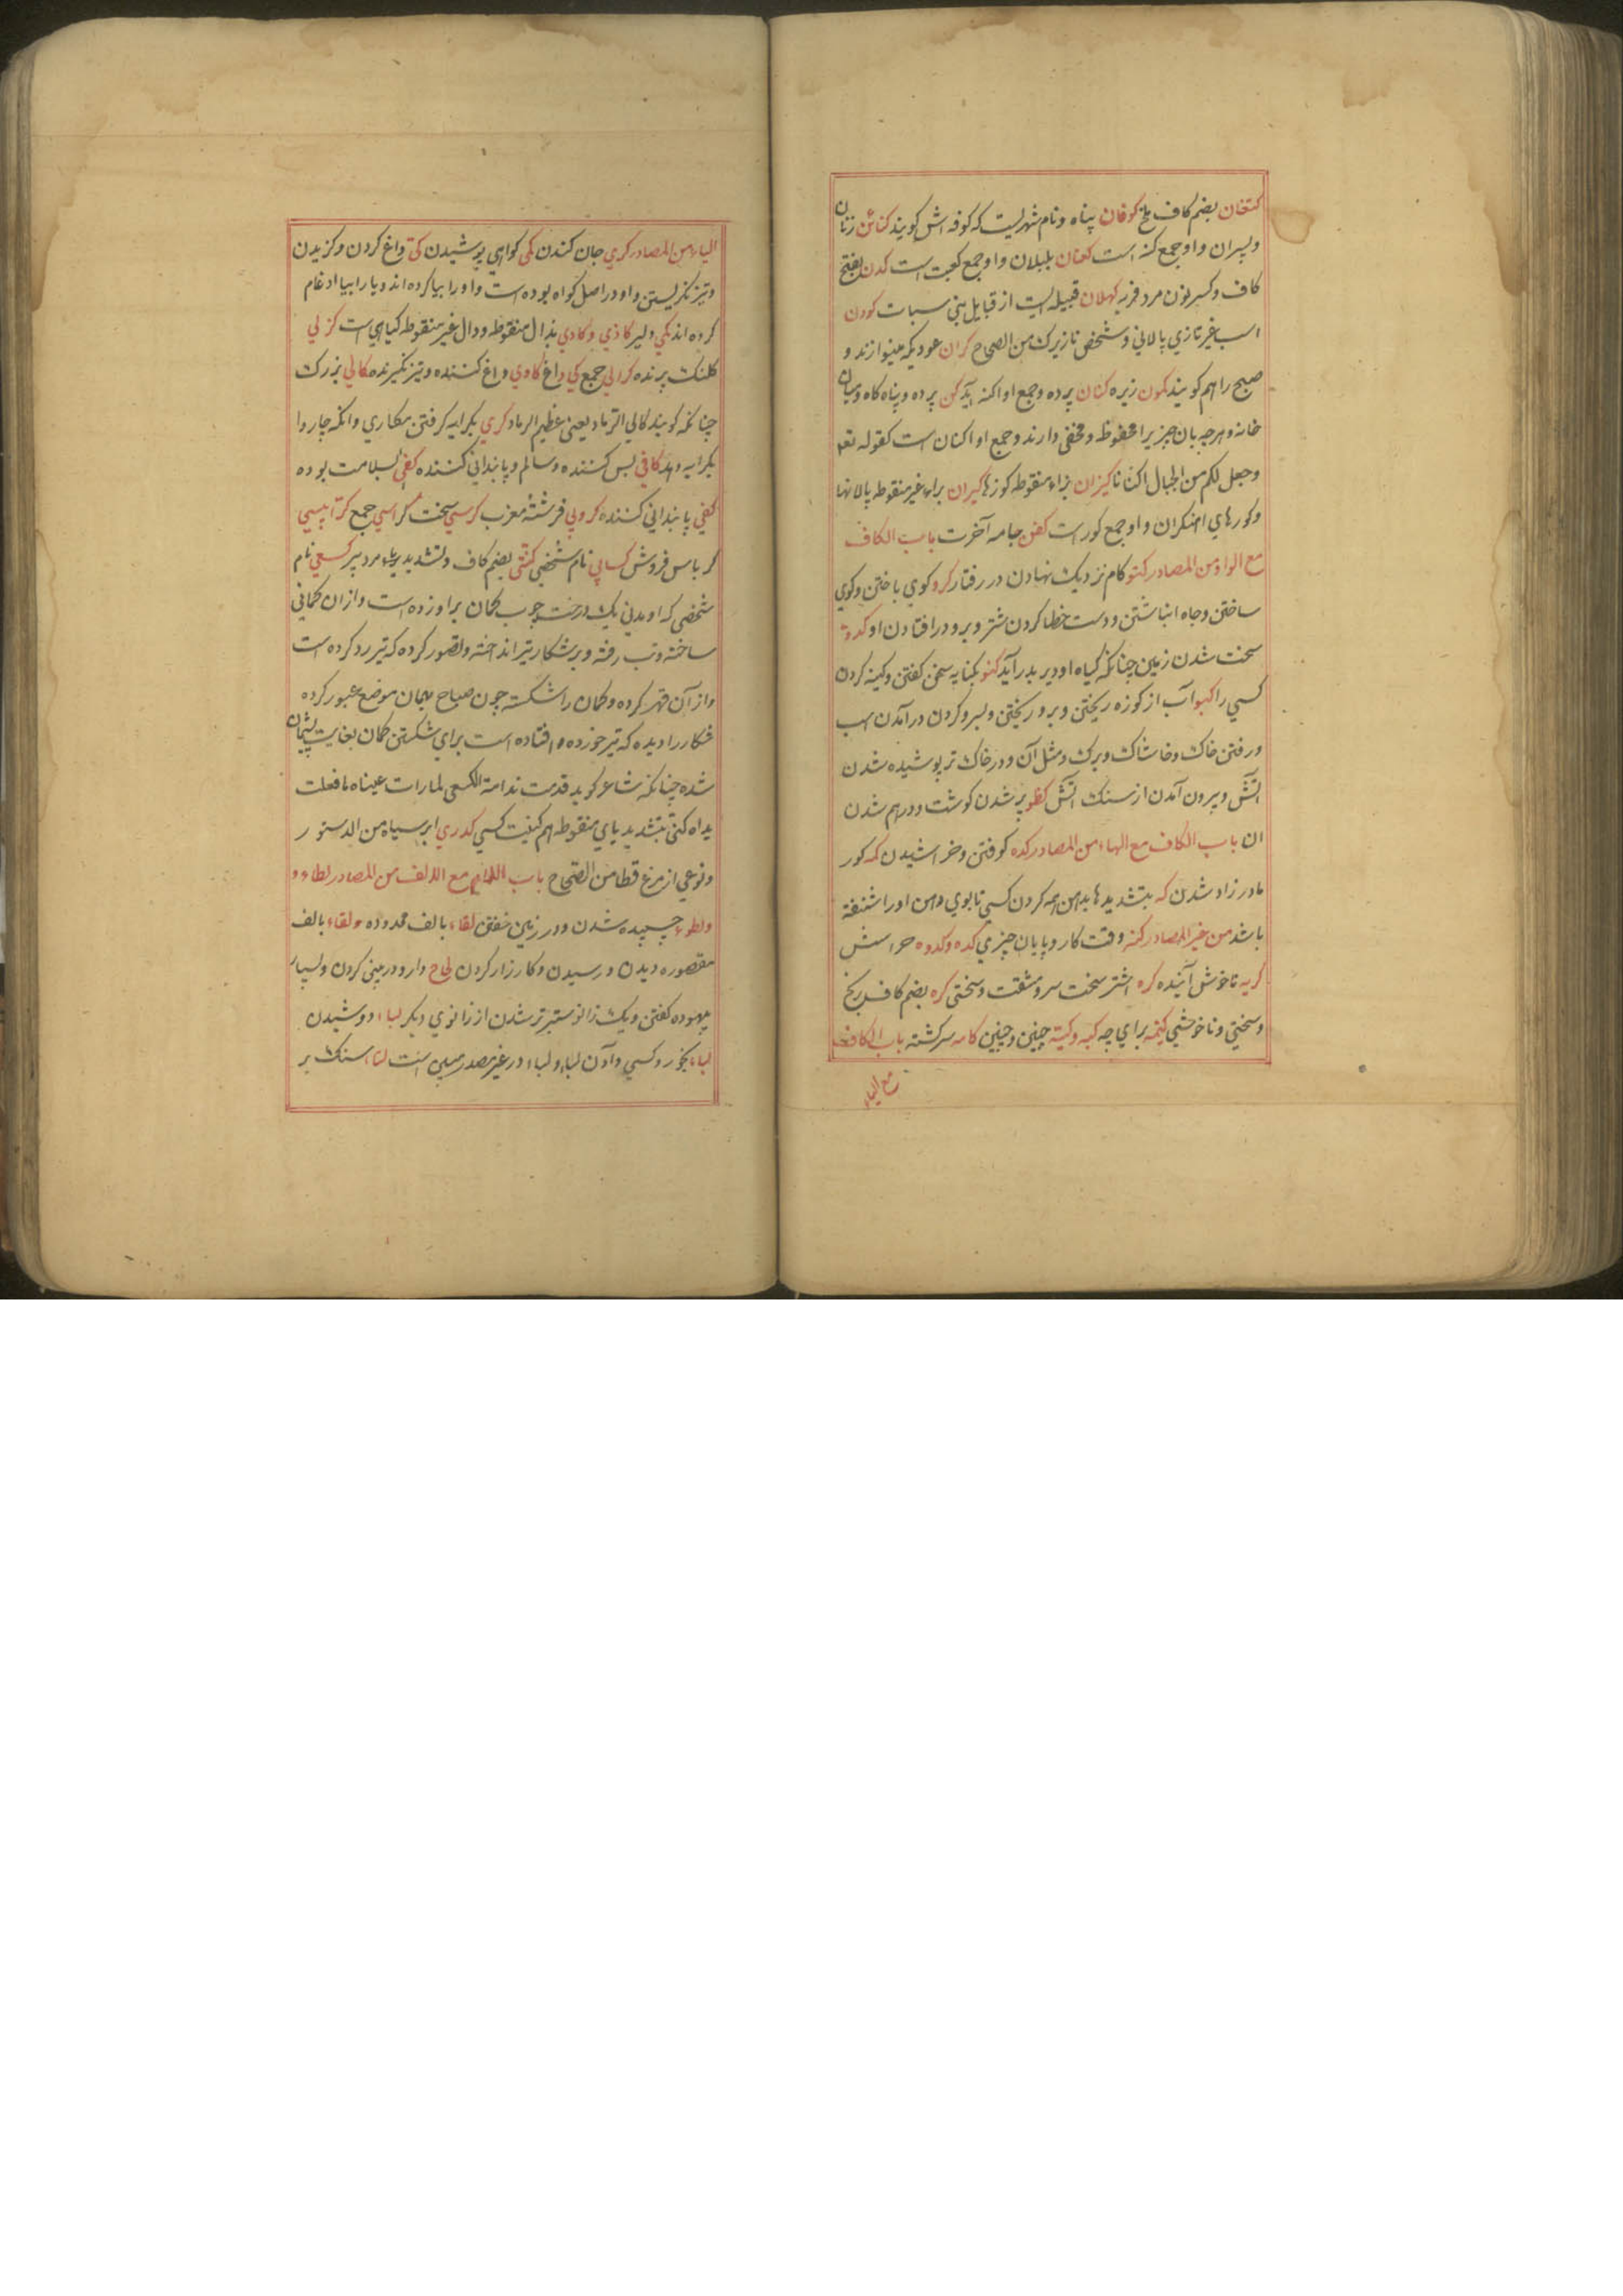 کتخان بضم کاف ملخ کوفان پناه و نام شهریست که کوفه اش کویند کنائن زنان
و پسران و او جمع کنه است کعتان بلبلان و او جمع کعیت است کدن بفتح
کاف و کسر نون مرد فربه کهلان قبیله ایست از قبایل بنی سبات کودن
اسب غیر تازی پالانی و شخص نازیرک من الصحاح کران عود یکه مینوازند و
صبح را هم کویند کمون زیره کنان پرده و جمع او اکنه آید کن پرده و پناه کاه و میان
خانه و هرچه بان چیزیرا محفوظ و مخفی دارند و جمع او اکنان است کقوله تعه
وجعل لکم من الجبال اکنانا کیزان بزاء منقوطه کوزها کیران براء غیر منقوطه پالانها
و کورهای اهنکران و او جمع کور است کفن جامه آخرت باب الکاف
مع الواو من المصادر کتو کام نزدیک نهادن در رفتار کرو کوی باختن و کوی
ساختن و چاه انباشتن و دست خطا کردن شتر و برو در افتادن او کدو
سخت شدن زمین چنانکه کیاه او دیر بدر آید کنو بکنایه سخن کفتن و کینه کردن
کسی را کبو آب از کوزه ریختن و برو ریختن و بسر و کردن در آمدن اسب
و رفتن خاک و خاشاک و برک و مثل آن و در خاک تر پوشیده شدن
آتش و بیرون آمدن از سنک آتش کظو پر شدن کوشت و درهم شدن
ان باب الکاف مع الهاء من المصادر کده کوفتن و خراشیدن کمه کور
مادر زاد شدن که بتشدید ها بدهن همه کردن کسی تا بوی دهن او را شنفته
باشد من غیر المصادر کنه وقت کار و پایان چیزی کده و کدوه خراش
کریه ناخوش آینده کره اشتر سخت سر و مشقت و سختی کره بضم کاف رنج
و سختی و ناخوشی کیمه برای چه کیه و کیته چنین و چنین کامه سرکشته باب الکاف
مع الیاء
الیاء من المصادر کری جان کندن کمی کواهی پوشیدن کی داغ کردن و کزیدن
و تیز نکریستن و او در اصل کواه بوده است واو را بیا کرده اند و یا را بیا ادغام
کرده اند کمی دلیر کاذی و کادی بذال منقوطه و دال غیر منقوطه کیاهی است کزلی
کلنک پرنده کرالی جمع کی داغ کاوی داغ کننده و تیز نکیرنده کالی بزرک
چنانکه کویند کالی الرماد یعنی عظیم الرماد کری بکرایه کرفتن مکاری و انکه چاروا
بکرایه دهد کافی بس کننده و سالم و پابندانی کننده کفی بسلامت بوده
کفی پابندانی کننده کروبی فرشته مغرب کرسی سخت کراسی جمع کرابیسی
کرباس فروش کسایی نام شخصی کنتی بضم کاف و تشدید یاء مرد پیر کسعی نام
شخصی که او مدتی یک درخت چوب کمان براورده است و ازان کمانی
ساخته و شب رفته و بر شکار تیر انداخته و تصور کرده که تیر رد کرده است
و از آن قهر کرده و کمان را شکسته چون صباح بهمان موضع عبور کرده
شکار را دیده که تیر خورده و افتاده است برای شکستن کمان بغایت پشیمان
شده چنانکه شاعر کوید قدمت ندامة الکسعی لما رات عیناه ما فعلت
یداه کنی بتشدید یای منقوطه هم کنیت کسی کدری ابر سیاه من الدستور
و نوعی از مرغ قطا من الصحاح باب اللام مع الالف من المصادر لطاء و
و لطوء چسپیده شدن و در زمین خفتن لقاء بالف ممدوده و لقاء بالف
مقصوره دیدن و رسیدن و کارزار کردن لخاء دارو در بینی کردن و بسیار
بیهوده کفتن و یک زانو ستبرتر شدن از زانوی دیکر لباء دوشیدن
لباء بخورد کسی دادن لباء و لباء در غیر مصدر مبین است لتاء سنک بر